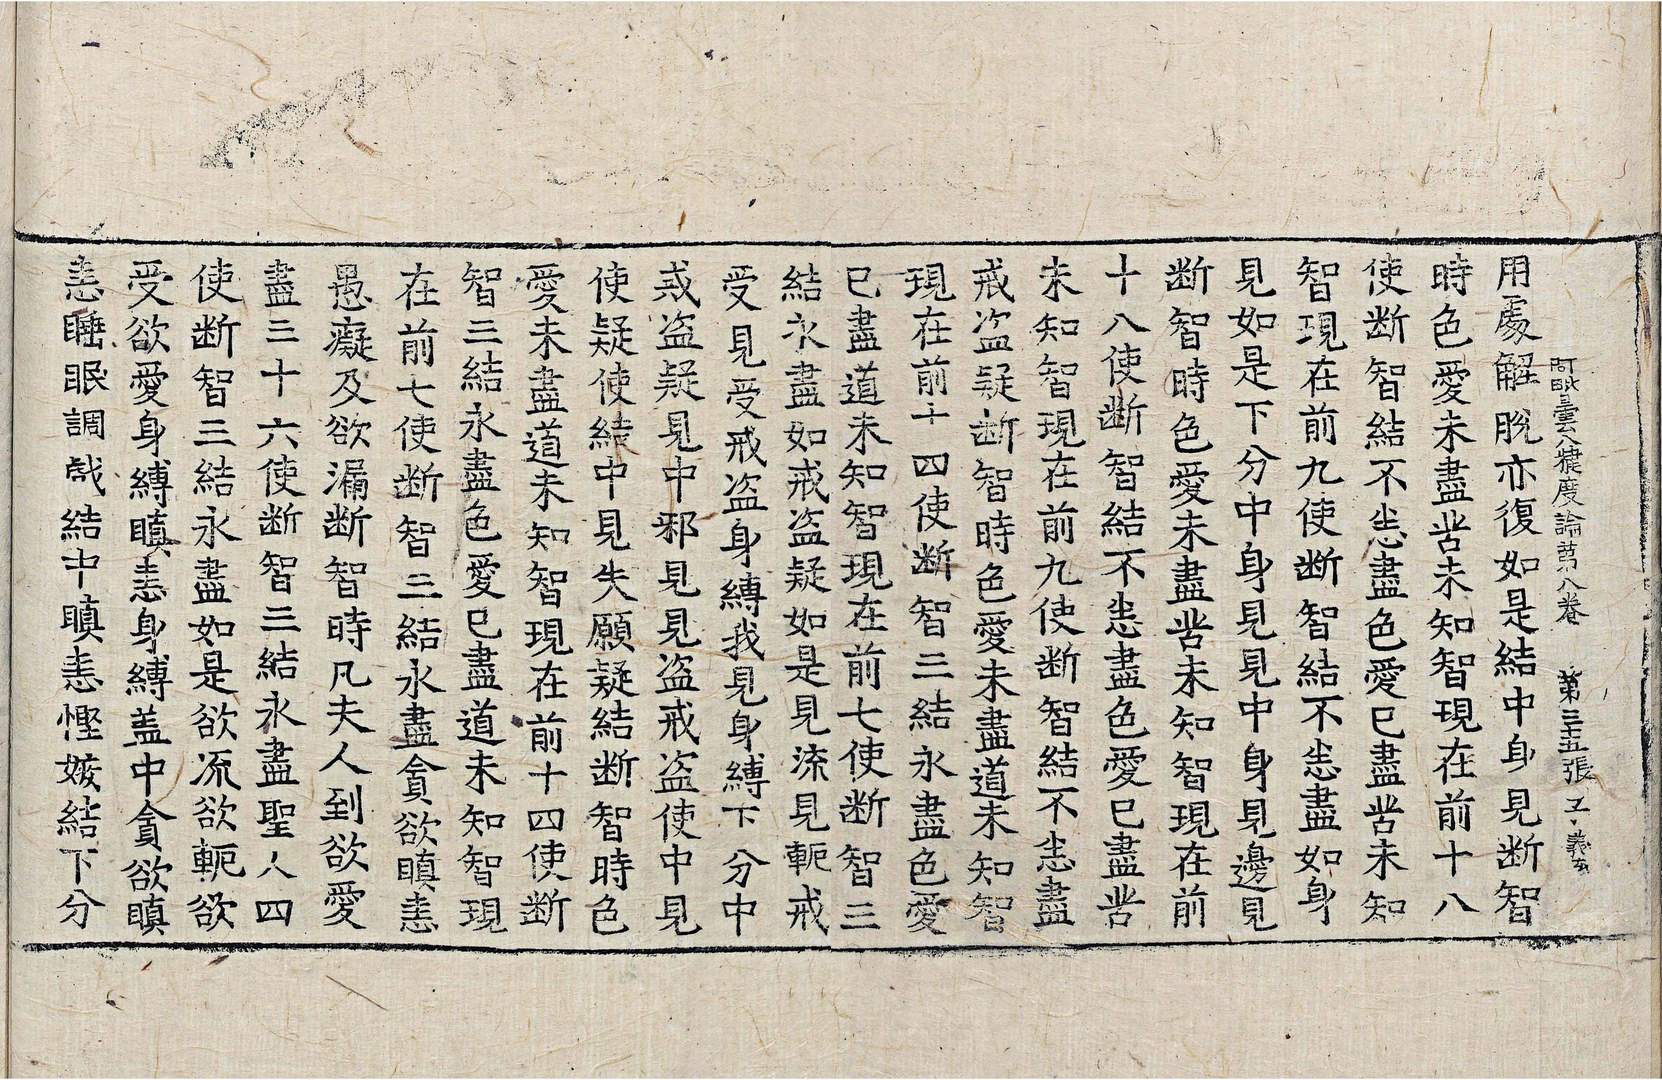 阿毗曇八犍度論第八卷　第三十五張
用處解脫亦復如是結中身見断智
時色愛未盡苦未知智現在前十八
使断智結不悉盡色愛已盡苦未知
智現在前九使断智結不悉盡如身
見如是下分中身見見中身見邊見
断智時色愛未盡苦未知智現在前
十八使断智結不悉盡色愛已盡苦
未知智現在前九使断智結不悉盡
戒盗疑断智時色愛未盡道未知智
現在前十四使断智三結永盡色愛
已盡道未知智現在前七使断智三
結永盡如戒盗疑如是見流見軛戒
受見受戒盗身縛我見身縛下分中
戒盗疑見中邪見見盗戒盗使中見
使疑使結中見失願疑結断智時色
愛未盡道未知智現在前十四使断
智三結永盡色愛已盡道未知智現
在前七使断智三結永盡貪欲瞋恚
愚癡及欲漏断智時凡夫人到欲愛
盡三十六使断智三結永盡聖人四
使断智三結永盡如是欲流欲軛欲
受欲愛身縛瞋恚身縛盖中貪欲瞋
恚睡眠調戲結中瞋恚慳嫉結下分